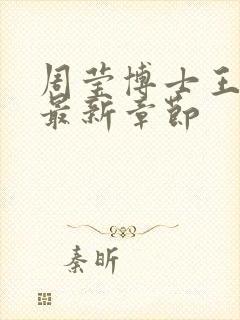 周莹博士王
最新章节
秦昕